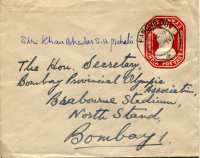 Shri Khan Bahadur S. M.
The Hon. Secretary,
Bombay Provincial Olympic
Association,
Brabourne Stadium,
North Stand,
Bombay 1.